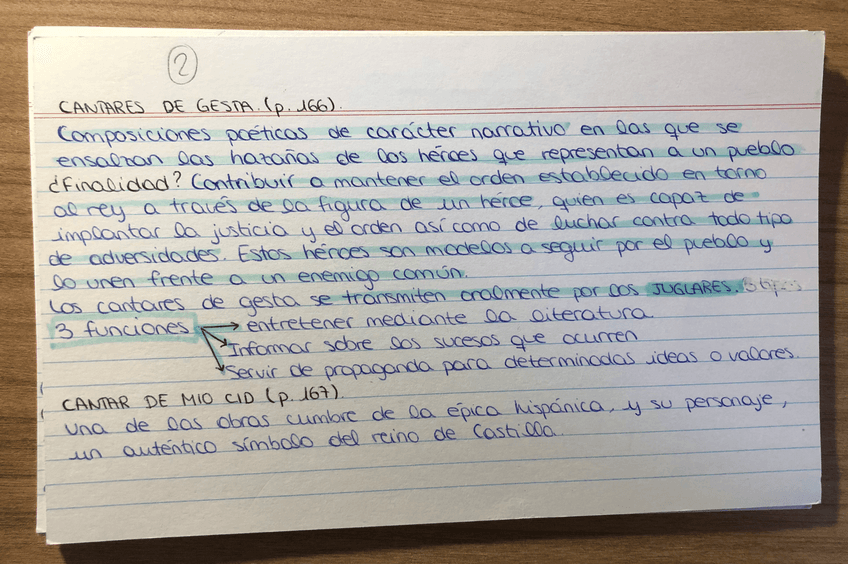 2
CANTARES DE GESTA. (p. 166).
Composiciones poéticas de carácter narrativo en las que se
ensalzan las hazañas de los héroes que representan a un pueblo
¿Finalidad? Contribuir a mantener el orden establecido en torno
al rey a través de la figura de un héroe, quien es capaz de
implantar la justicia y el orden así como de luchar contra todo tipo
de adversidades. Estos héroes son modelos a seguir por el pueblo y
lo unen frente a un enemigo común.
Los cantares de gesta se transmiten oralmente por los JUGLARES.
3 funciones → entretener mediante la literatura
Informar sobre los sucesos que ocurren
Servir de propaganda para determinadas ideas o valores.
CANTAR DE MIO CID (p. 167).
una de las obras cumbre de la épica hispánica, y su personaje,
un auténtico símbolo del reino de Castilla.